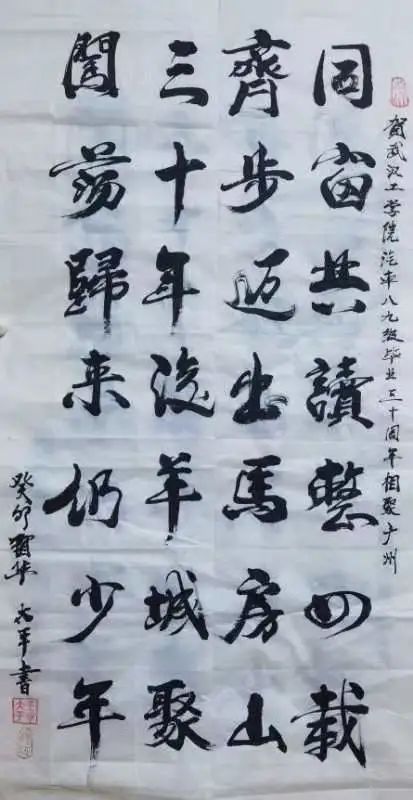 贺武汉工学院汽车八九级毕业三十周年相聚广州
同窗共讀整四载
齊步迈出馬房山
三十年後羊城聚
闖荡歸来仍少年
癸卯 书